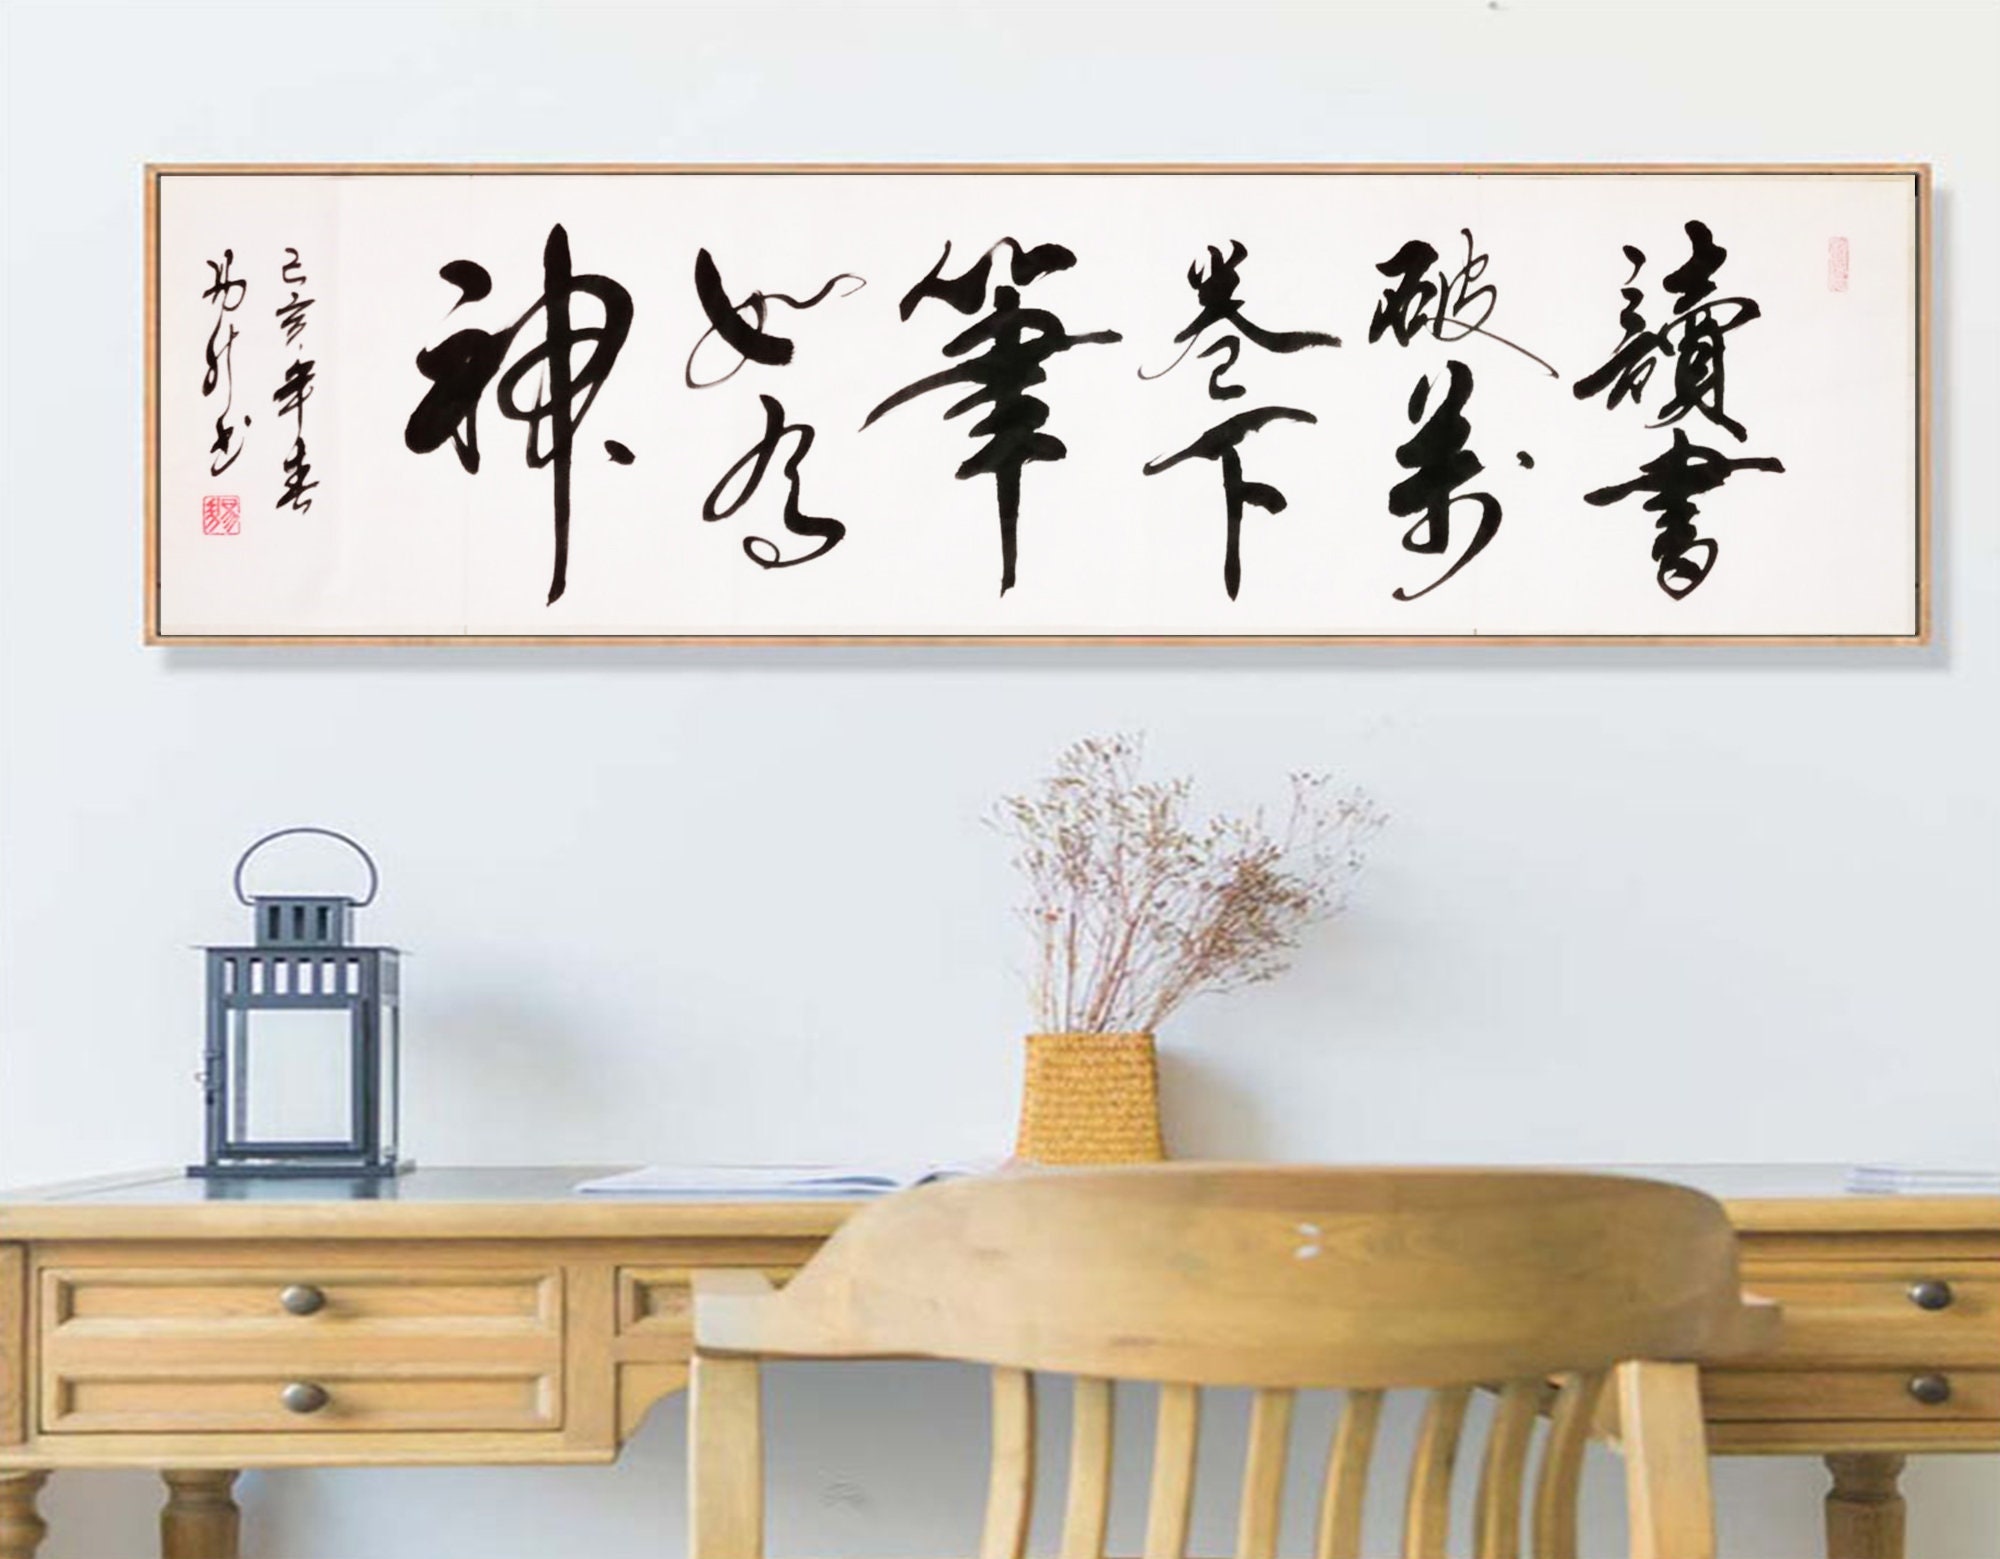 讀書
破萬
卷下
筆
如有
神
己亥年春